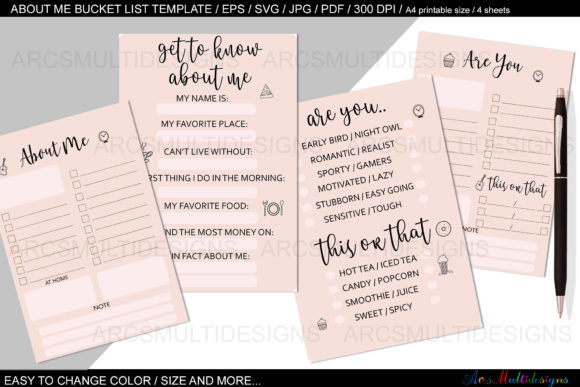 ABOUT ME BUCKET LIST TEMPLATE / EPS / SVG / JPG / PDF / 300 DPI / A4 printable size / 4 sheets
ARCSMULTIDESIGNS
get to know
about me
MY NAME IS:
MY FAVORITE PLACE:
CAN'T LIVE WITHOUT:
IRST THING I DO IN THE MORNING:
MY FAVORITE FOOD:
ND THE MOST MONEY ON:
IN FACT ABOUT ME:
About Me
AT HOME
NOTE
are you..
EARLY BIRD / NIGHT OWL
ROMANTIC / REALIST
SPORTY / GAMERS
MOTIVATED / LAZY
STUBBORN / EASY GOING
SENSITIVE / TOUGH
this or that
HOT TEA / ICED TEA
CANDY / POPCORN
SMOOTHIE / JUICE
SWEET / SPICY
Are You
this or that
/
/
/
NOTE
ARCSMULTIDESIGNS
ARCSMULTIDESIGNS
ARCSMULTIDESIGNS
EASY TO CHANGE COLOR / SIZE AND MORE...
ArcsMultidesigns